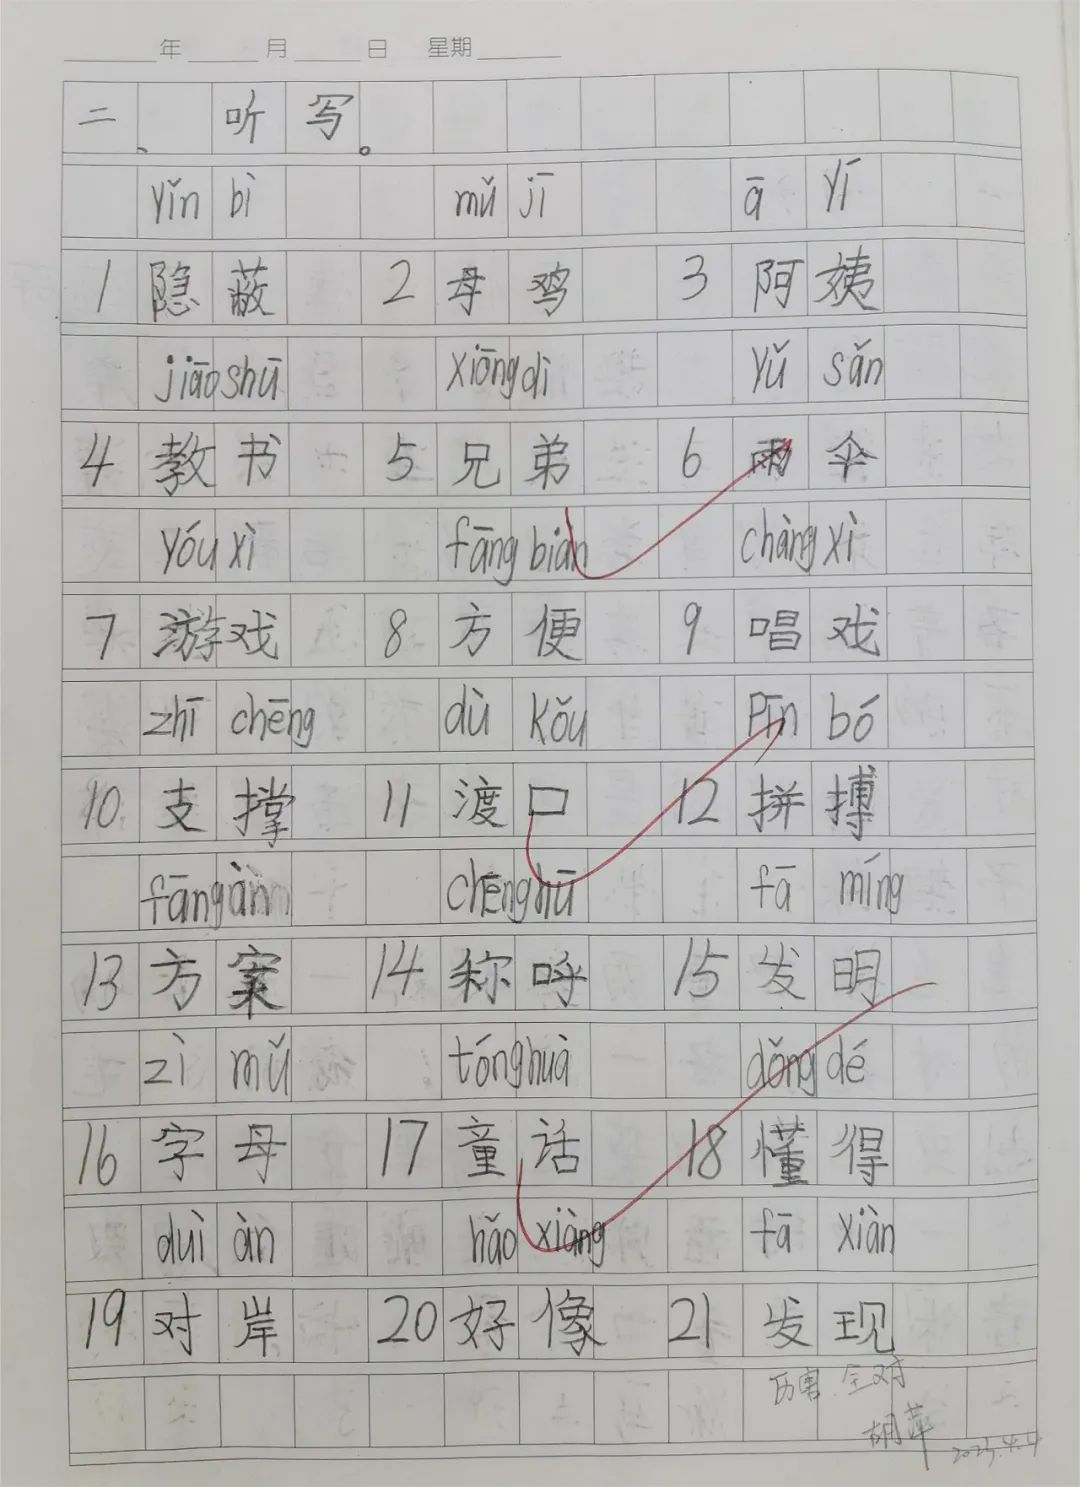 年 月 日 星期
二、听写。
yǐn bì mǔ jī ā yí
1 隐蔽 2 母鸡 3 阿姨
jiāo shū xiōng dì yǔ sǎn
4 教书 5 兄弟 6 雨伞
yóu xì fāng biàn chàng xì
7 游戏 8 方便 9 唱戏
zhī chēng dù kǒu pīn bó
10 支撑 11 渡口 12 拼搏
fāng àn chēng hū fā míng
13 方案 14 称呼 15 发明
zì mǔ tóng huà dǒng dé
16 字母 17 童话 18 懂得
duì àn hǎo xiàng fā xiàn
19 对岸 20 好像 21 发现
厉害 全对
胡萍 2023.4.4